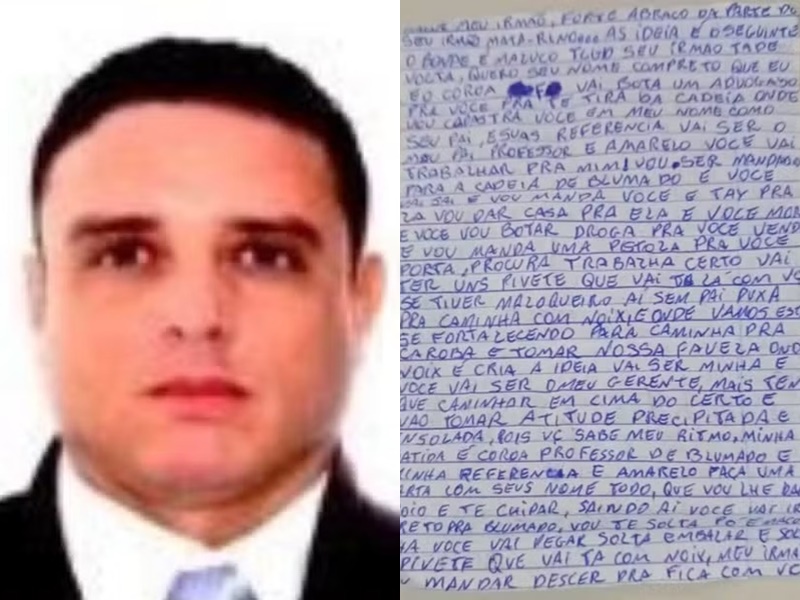 MEU IRMÃO, FORTE ABRAÇO DA PARTE DO
SEU IRMÃO MATA-RINDO AS IDEIA E O SEGUINTE
O BONDE E MALUCO TCUD SEU IRMÃO TADE
VOLTA, QUERO SEU NOME COMPRETO QUE EU
E O COROA VAI BOTA UM ADVOGADO
PRA VOCE PRA TE TIRA DA CADEIA ONDE
VOU CAPASTRA VOCE EM MEU NOME COMO
SEU PAI, ESUAS REFERENCIA VAI SER O
MEU PAI PROFESSOR E AMARELO VOCE VAI
TRABALHAR PRA MIM, VOU SER MANDADO
PARA A CADEIA DE BLUMADO E VOCE
SAI E VOU MANDA VOCE E TAY PRA
LA VOU DAR CASA PRA ELA E VOCE MOR
E VOCE VOU BOTAR DROGA PRA VOCE VEND
E VOU MANDA UMA PETOLA PRA VOCE
PORTA, PROCURA TRABALHA CERTO VAI
TER UNS PIVETE QUE VAI TA LÁ COM VO
SE TIVER MALOQUEIRO AI SEM PAI PUXA
PRA CAMINHA COM NOIX, E ONDE VAMOS EST
SE FORTALECENDO PARA CAMINHA PRA
CAROBA E TOMAR NOSSA FAVEZA OND
NOIX E CRIA A IDEIA VAI SER MINHA E
VOCE VAI SER O MEU GERENTE, MAIS TEN
QUE CAMINHAR EM CIMA DO CERTO E
NÃO TOMAR ATITUDE PRECIPITADA E
INSOLADA, POIS VC SABE MEU RITMO, MINHA
ATIDA E COROA PROFESSOR DE BLUMADO E
MINHA REFERENCIA E AMARELO FAÇA UMA
CARTA COM SEUS NOME TODO, QUE VOU LHE DA
E TE CUIDAR, SAINDO AI VOCE VAI IR
RETO PRA BLUMADO, VOU TE SOLTA
VOCE VAI PEGAR SOLTA EMBALAR E SOL
PIVETE QUE VAI TA COM NOIX, MEU IRMÃ
MANDAR DESCER PRA FICA COM VC